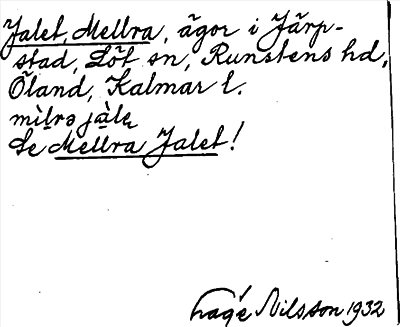 Jalet, Mellra, ägor i Järp-
stad, Löt sn, Runstens hd,
Öland, Kalmar l.
mìlrə jàlɛ
Se Mellra Jalet!
Nilsson 1932